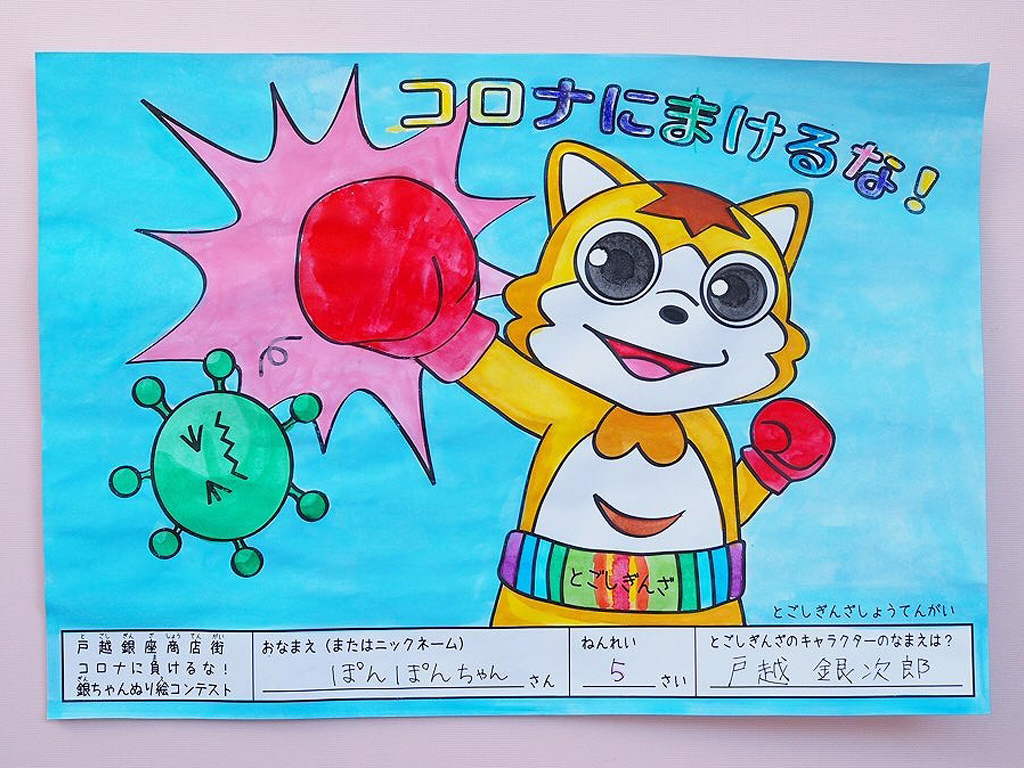 コロナにまけるな!
とごしぎんざ
とごしぎんざしょうてんがい
とごしぎんざしょうてんがい
戸越銀座商店街
コロナに負けるな!
銀ちゃんぬり絵コンテスト
おなまえ(またはニックネーム)
ぽんぽんちゃん さん
ねんれい
5 さい
とごしぎんざのキャラクターのなまえは?
戸越 銀次郎